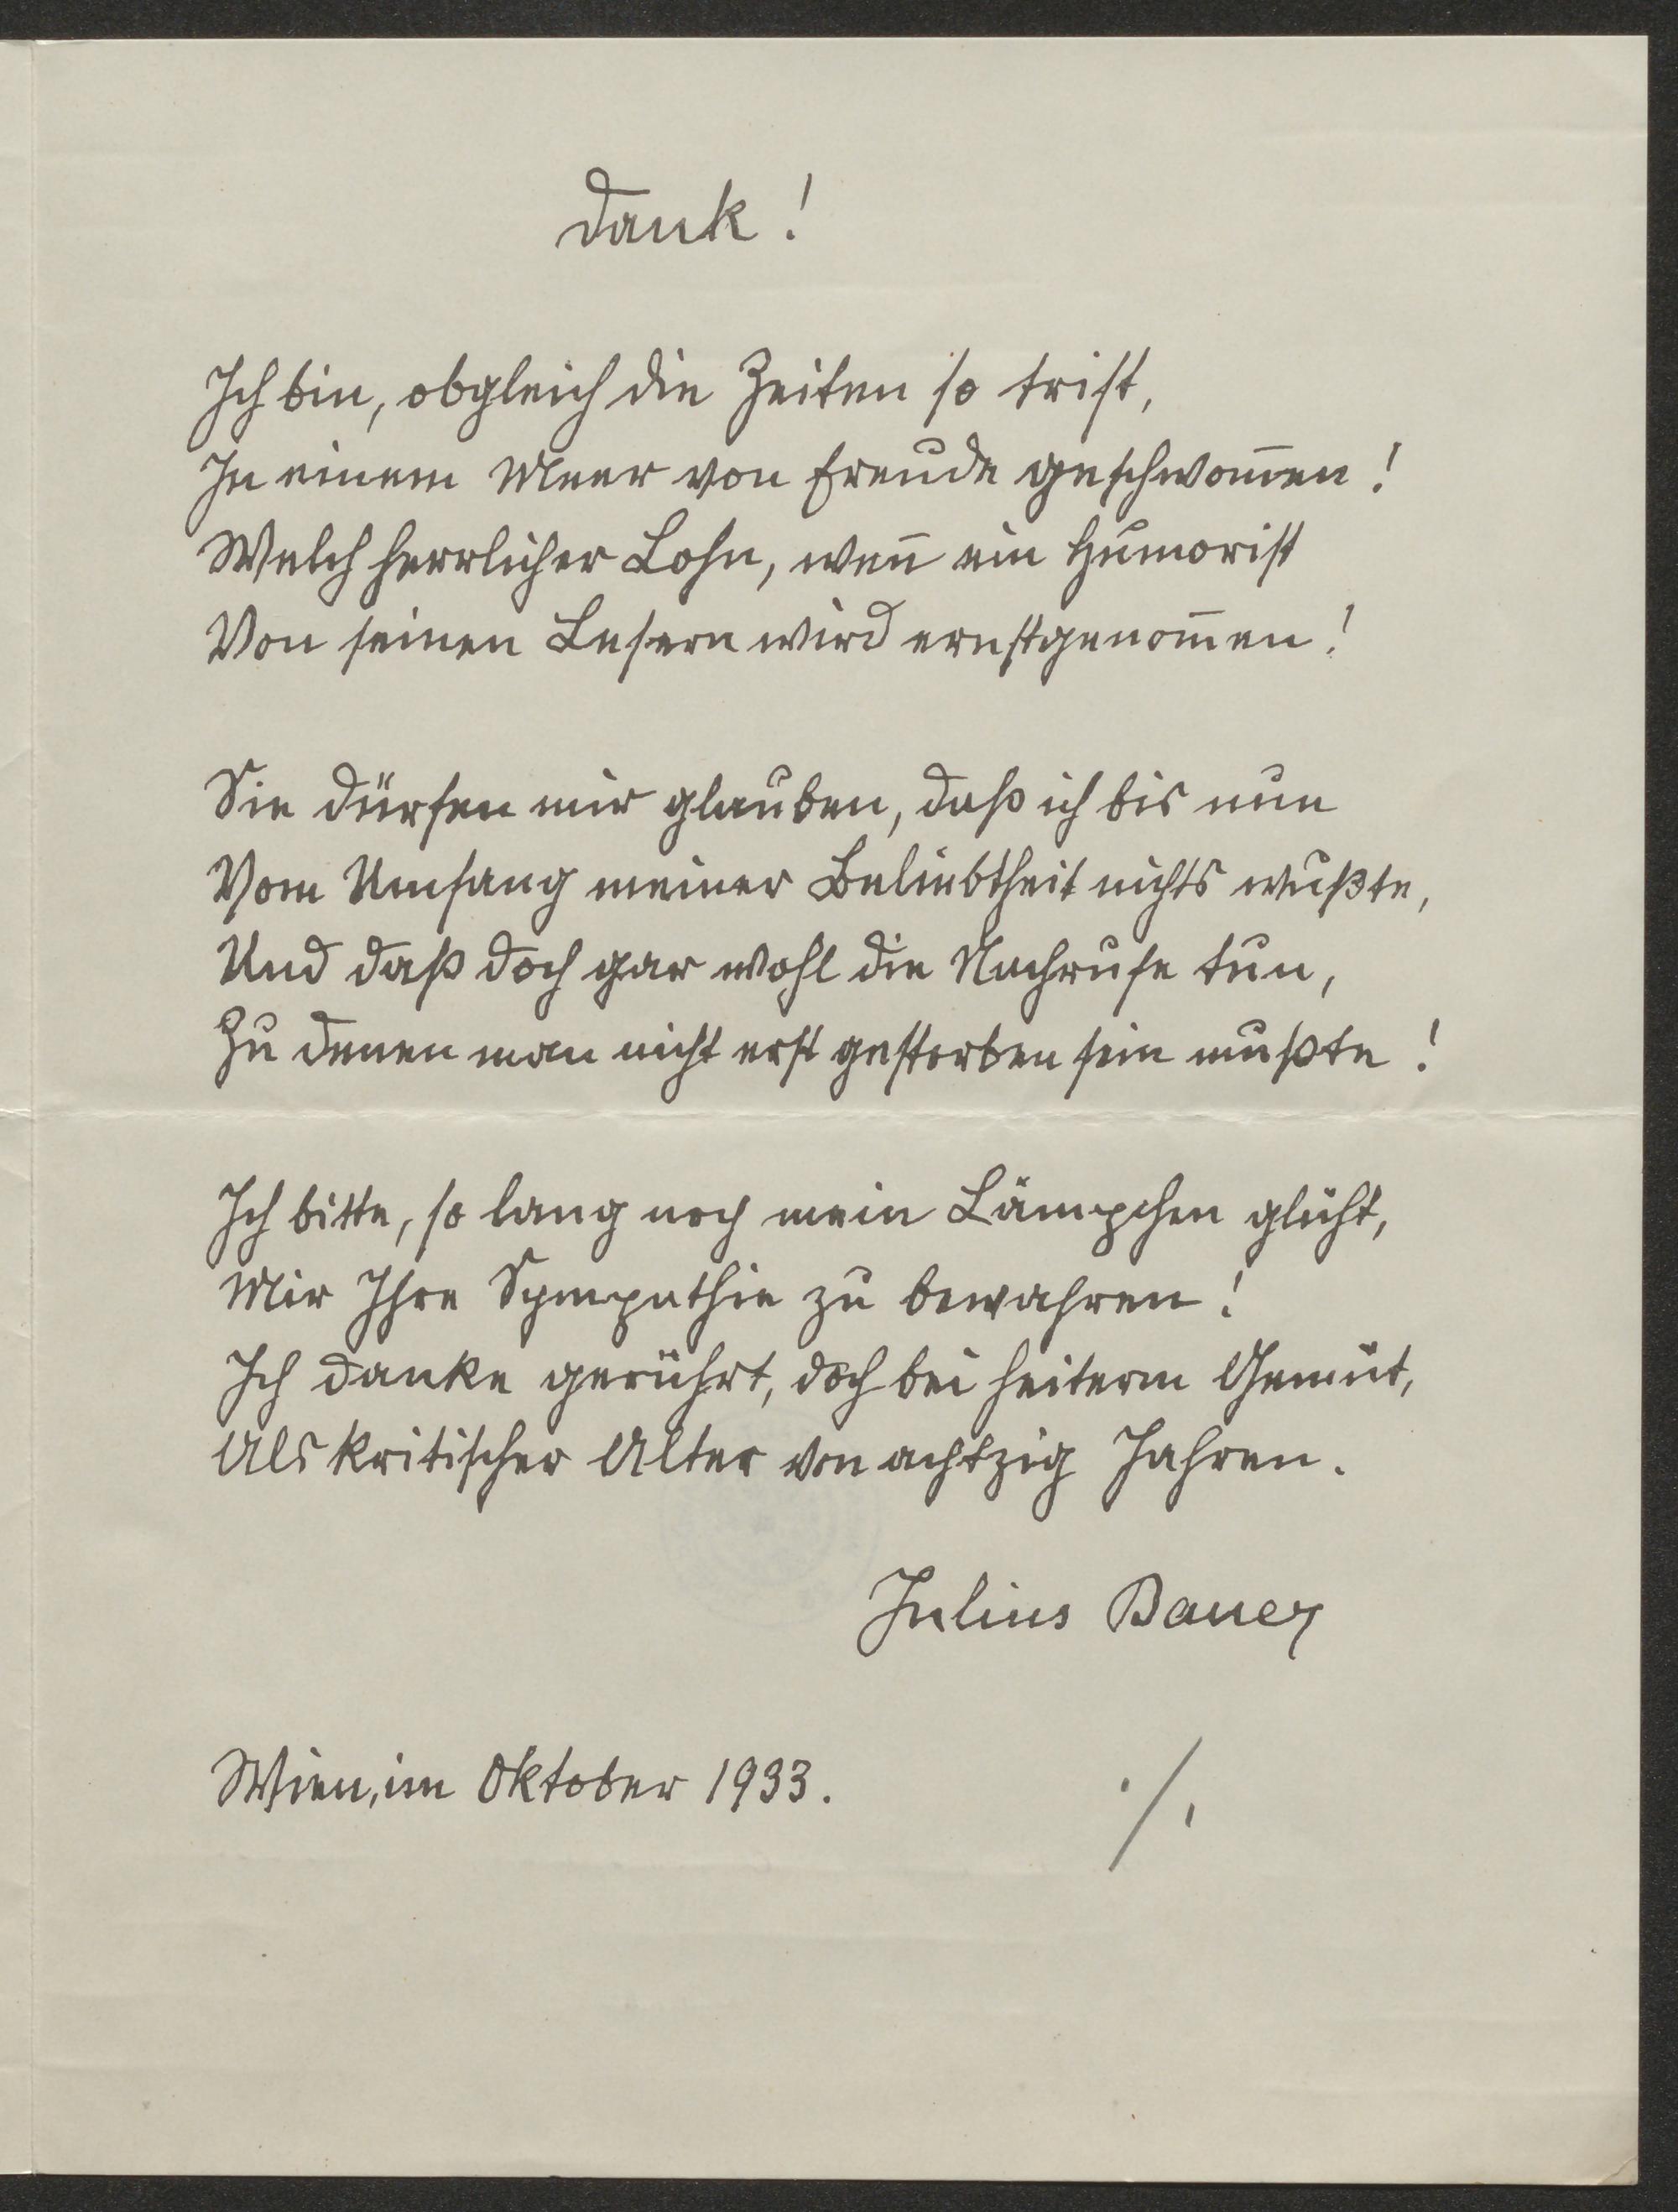 Dank!
Ich bin, obgleich die Zeiten so trist,
In einem Meer von Freude geschwom̅en!
Welch herrlicher Lohn, wen̅ ein Humorist
Von seinen Lesern wird ernstgenom̅en!
Sie dürfen mir glauben, daß ich bis nun
Vom Umfang meiner Beliebtheit nichts wußte,
Und daß doch gar wohl die Nachrufe tun,
Zu denen man nicht erst gestorben sein mußte!
Ich bitte, so lang noch mein Lämpchen glüht,
Mir Ihre Sympathie zu bewahren!
Ich danke gerührt, doch bei heiterm Gemüt,
Als kritischer Alter von achtzig Jahren.
Julius Bauer
Wien, im Oktober 1933.
./.